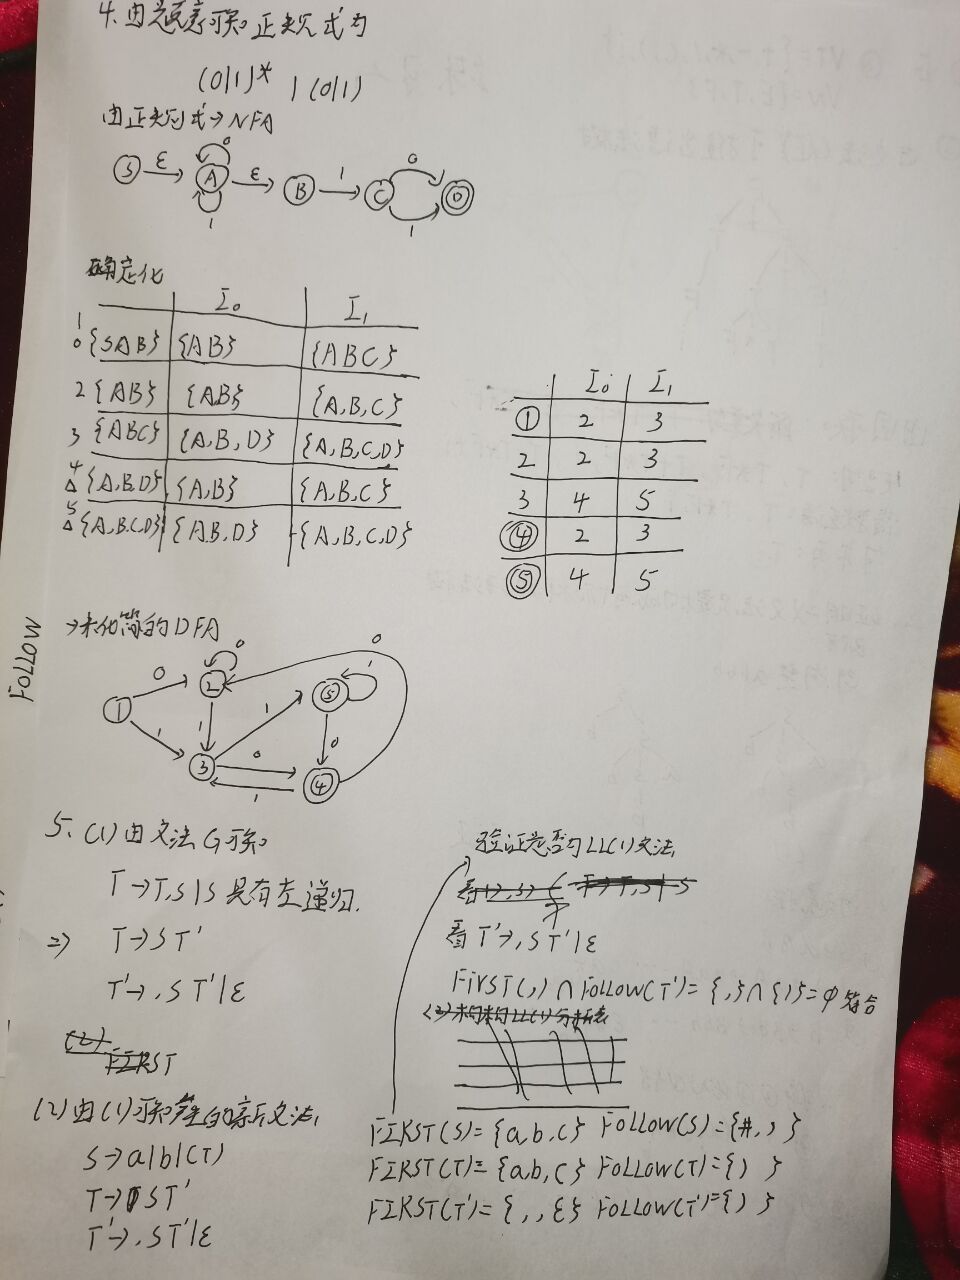 4. 由题意可知正规式为
(0|1)* 1 (0|1)
由正规式→NFA
S ε A ε B 1 C 0 D
0
1
1
确定化
I₀ I₁
1 0 {SAB} {AB} {ABC}
2 {AB} {AB} {A,B,C}
3 {ABC} {A,B,D} {A,B,C,D}
4 Δ {A,B,D} {A,B} {A,B,C}
5 Δ {A,B,C,D} {AB,D} {A,B,C,D}
I₀ I₁
① 2 3
2 2 3
3 4 5
④ 2 3
⑤ 4 5
→未化简的DFA
FOLLOW
0 0 0
① ② ⑤ 1
1 1 1 0
③ 0 ④
1
5. (1) 由文法G可知
T→T,S|S 具有左递归.
⇒ T→ST'
T'→,ST'|ε
(2)
FIRST
(2)由(1)可知产生的新文法,
S→a|b|(T)
T→ST'
T'→,ST'|ε
验证是否为LL(1)文法,
看T'→,ST'|ε
FIRST(,)∩FOLLOW(T')={,}∩{)}=φ 符合
FIRST(S)={a,b,c} FOLLOW(S)={#,,}
FIRST(T)={a,b,c} FOLLOW(T)={)}
FIRST(T')={,,ε} FOLLOW(T')={)}